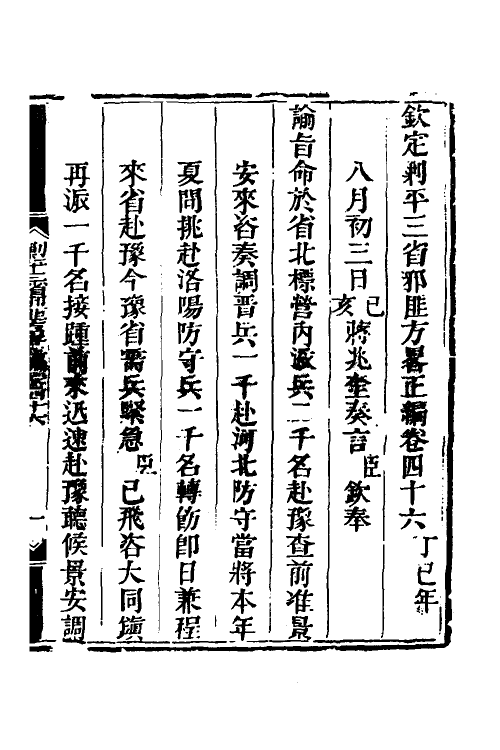 欽定剿平三省邪匪方畧正編卷四十六丁巳年
八月初三日己亥蔣兆奎奏言臣欽奉
諭旨命於省北標營內派兵二千名赴豫查前准景
安來咨奏調晋兵一千赴河北防守當將本年
夏間挑赴洛陽防守兵一千名轉飭卽日兼程
來省赴豫今豫省需兵緊急臣已飛咨大同鎮
再派一千名接踵前來迅速赴豫聽候景安調
一